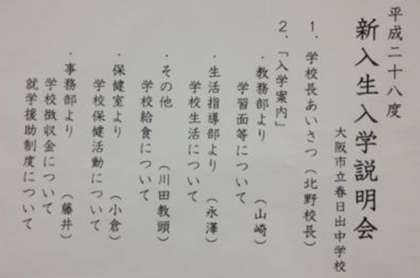 平成二十八度
新入生入学説明会
大阪市立春日出中学校
1．学校長あいさつ（北野校長）
2．「入学案内」
・教務部より（山崎）
学習面等について
・生活指導部より（永澤）
学校生活について
・その他（川田教頭）
学校給食について
・保健室より（小倉）
学校保健活動について
・事務部より（藤井）
学校徴収金について
就学援助制度について